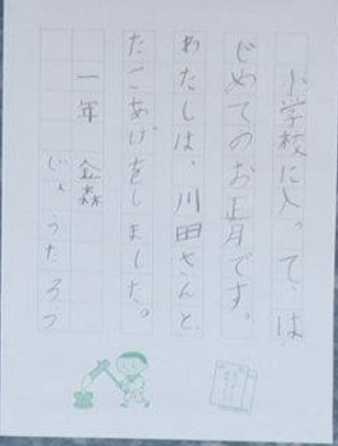 小学校に入って、は
じめてのお正月です。
わたしは、川田さんと、
たこあげをしました。
一年 金森
じょうたろう